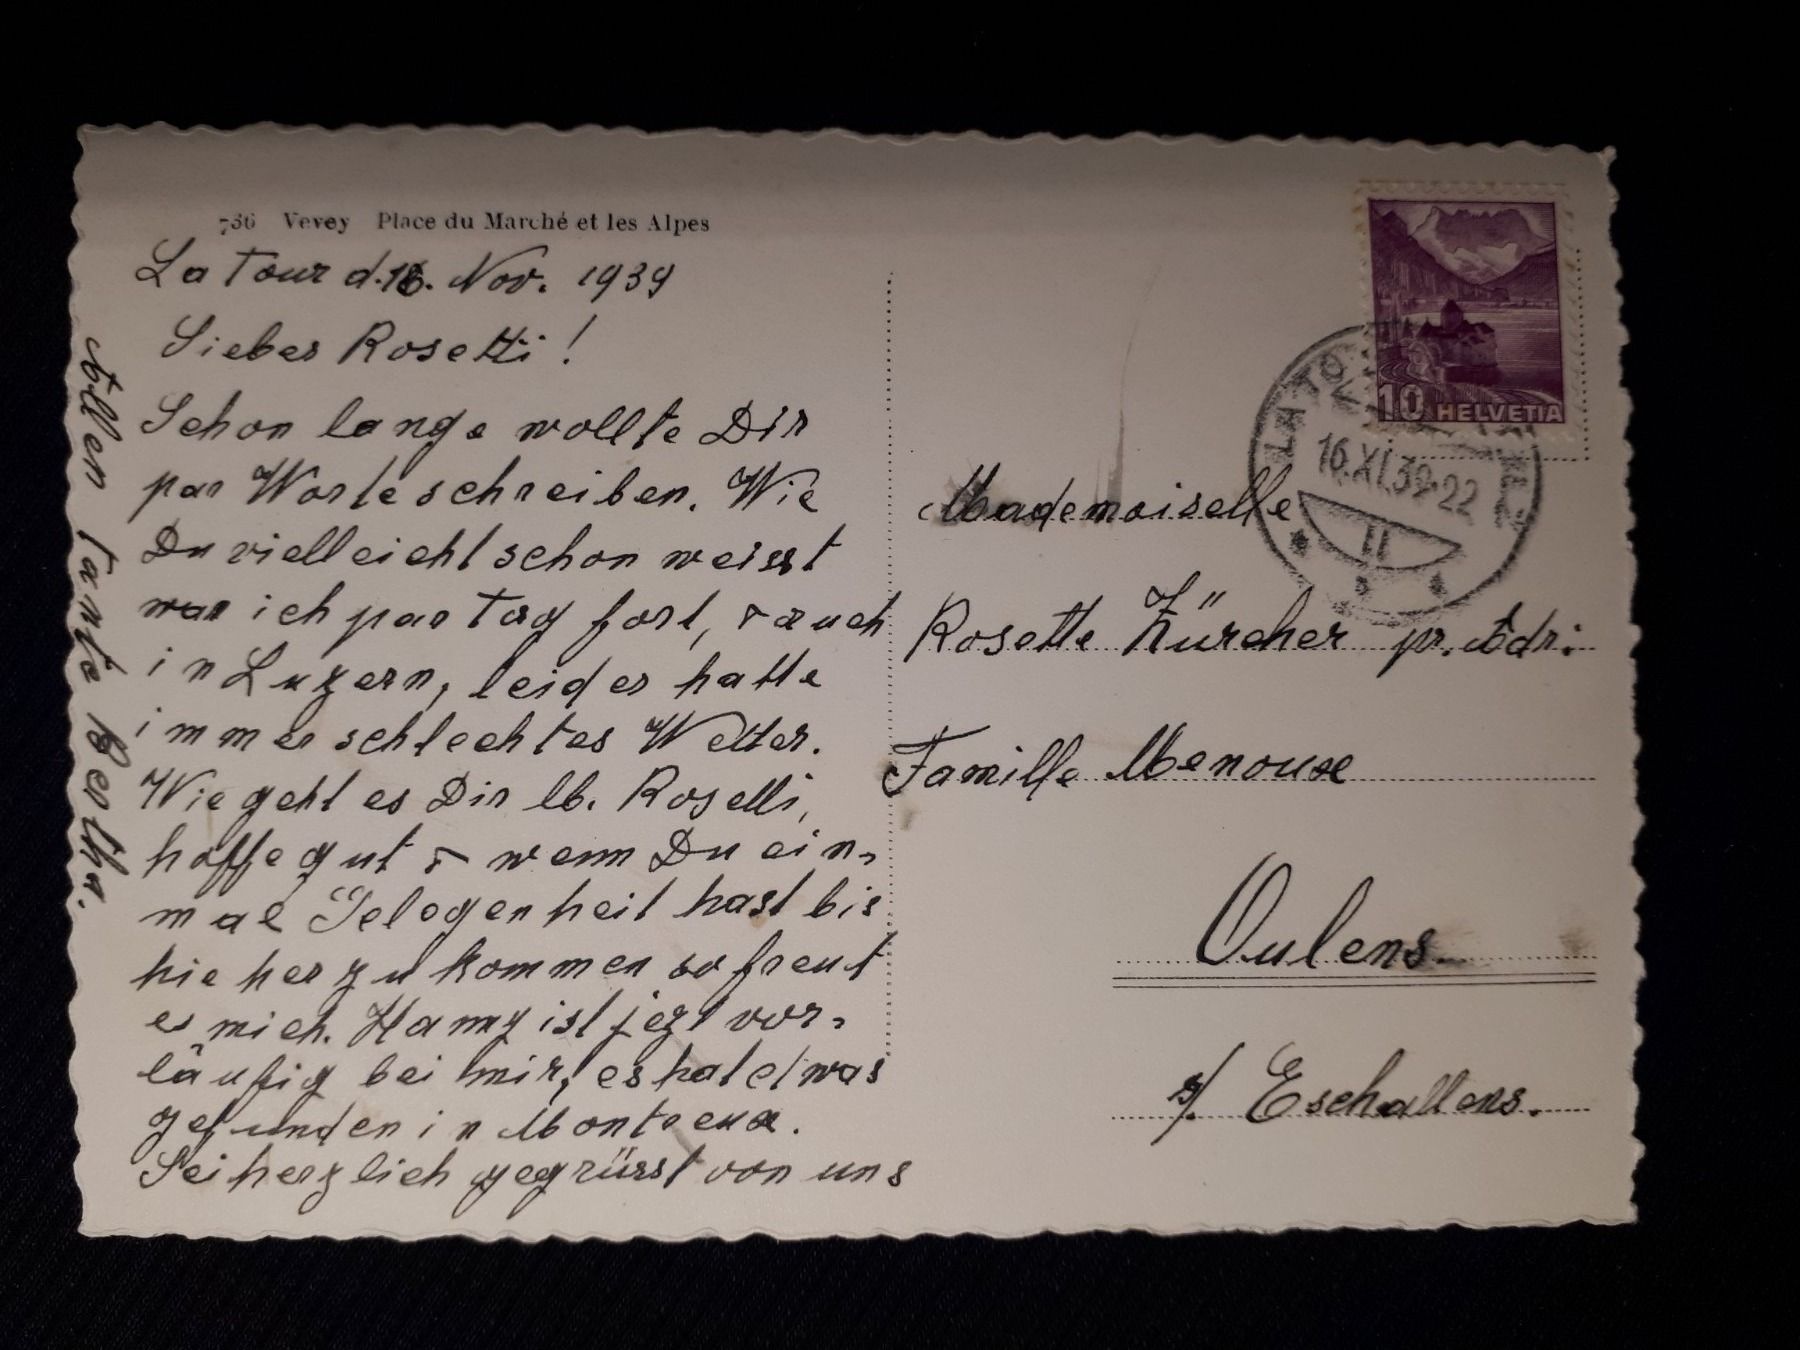 736 Vevey Place du Marché et les Alpes
La Tour d. 16. Nov. 1939
Liebes Rosetti!
Schon lange wollte Dir
par Worte schreiben. Wie
Du vielleicht schon weisst
war ich par Tag fort, auch
in Luzern, leider hatte
immer schlechtes Wetter.
Wie geht es Dir lb. Rosetti,
hoffe gut wenn Du ein-
mal Gelegenheit hast bis
hie her zu kommen so freut
es mich. Hanny ist jezt vor-
läufig bei mir, es hat etwas
gefunden in Montreux.
Sei herzlich gegrüsst von uns
Allen Tante Bertha.
10 HELVETIA
LA TO
16.XI.39-22
Mademoiselle
Rosette Zürcher pr. Adr:
Famille Menoux
Oulens
s/ Eschallens.